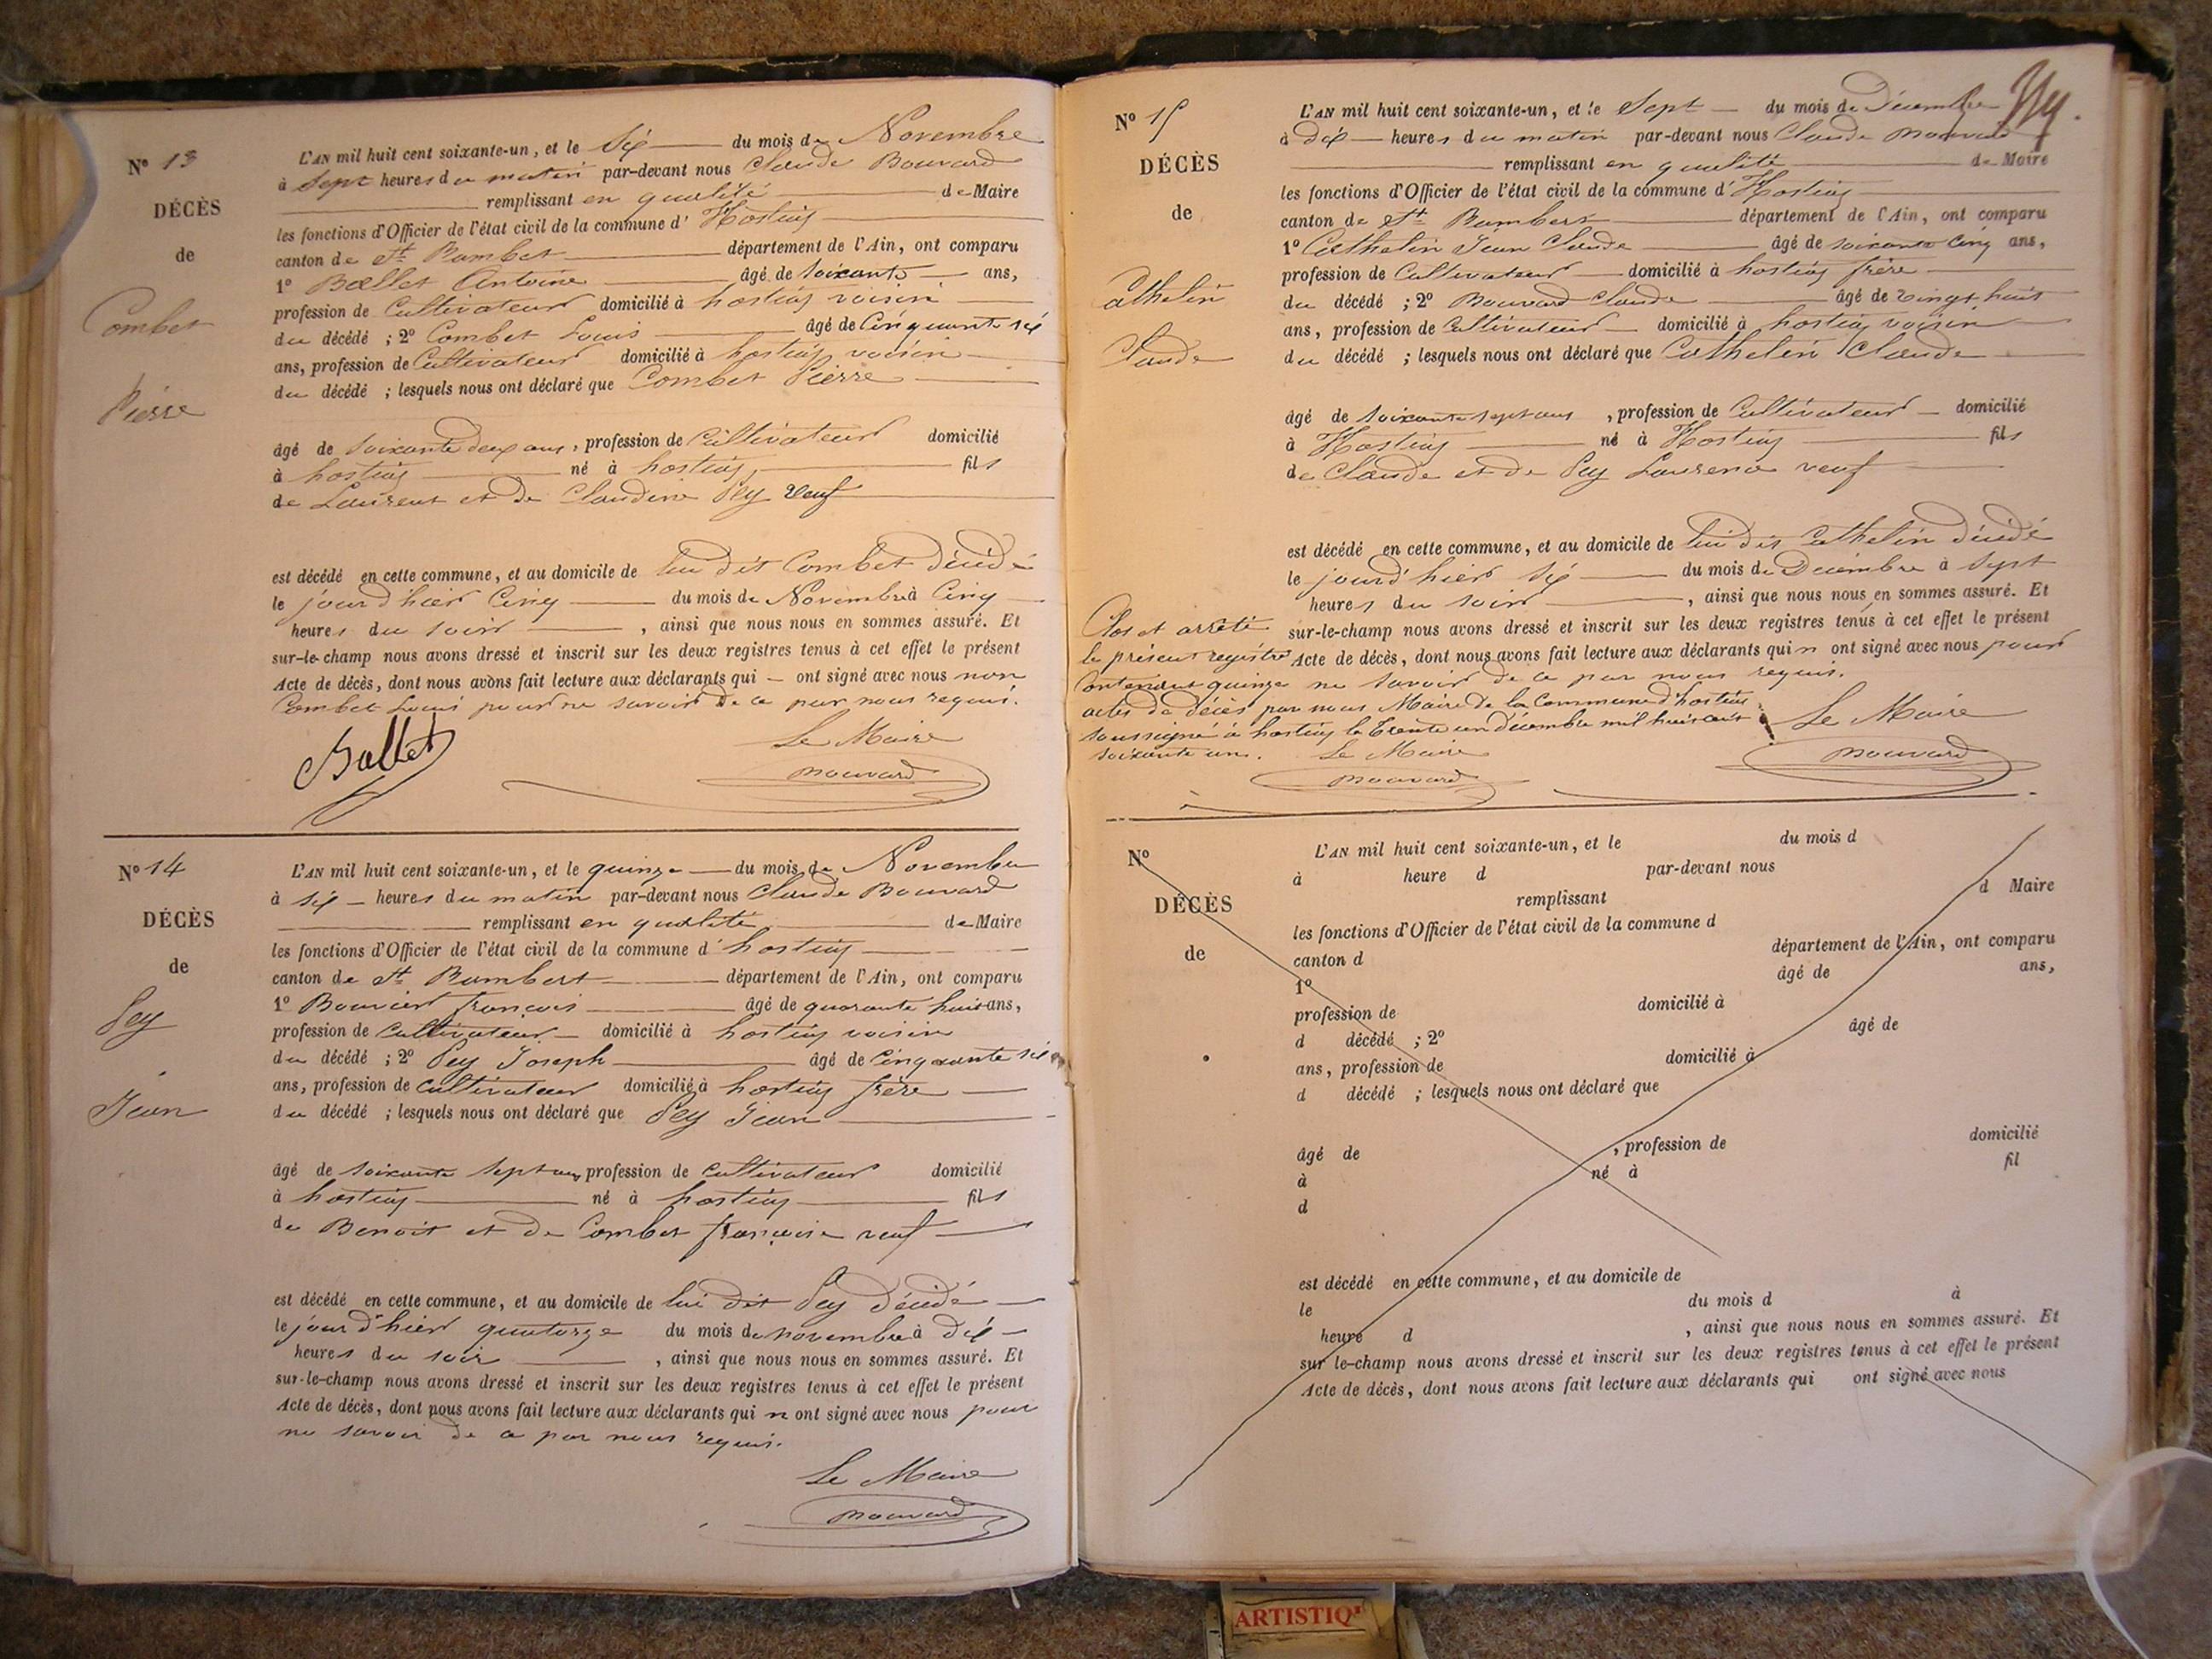 N° 13
DÉCÈS
de
Combet
Pierre
L'AN mil huit cent soixante-un, et le Six du mois de Novembre
à Sept heures du matin par-devant nous Claude Bouvard
remplissant en qualité de Maire
les fonctions d'Officier de l'état civil de la commune d' Hostias
canton de St Rambert département de l'Ain, ont comparu
1° Ballet Antoine âgé de soixante ans,
profession de Cultivateur domicilié à hostias voisin
du décédé ; 2° Combet Louis âgé de Cinquante six
ans, profession de Cultivateur domicilié à hostias voisin
du décédé ; lesquels nous ont déclaré que Combet Pierre
âgé de soixante deux ans, profession de Cultivateur domicilié
à hostias né à hostias fils
de Laurent et de Claudine Pey veuf
est décédé en cette commune, et au domicile de lui dit Combet décédé
le jour d'hier Cinq du mois de Novembre à Cinq
heures du soir , ainsi que nous nous en sommes assuré. Et
sur-le-champ nous avons dressé et inscrit sur les deux registres tenus à cet effet le présent
Acte de décès, dont nous avons fait lecture aux déclarants qui ont signé avec nous non
Combet Louis pour ne savoir de ce par nous requis.
Ballet
Le Maire
Bouvard
N° 14
DÉCÈS
de
Pey
Jean
L'AN mil huit cent soixante-un, et le quinze du mois de Novembre
à six heures du matin par-devant nous Claude Bouvard
remplissant en qualité de Maire
les fonctions d'Officier de l'état civil de la commune d' hostias
canton de St Rambert département de l'Ain, ont comparu
1° Bouvier françois âgé de quarante huit ans,
profession de Cultivateur domicilié à hostias voisin
du décédé ; 2° Pey Joseph âgé de Cinquante six
ans, profession de Cultivateur domicilié à hostias frère
du décédé ; lesquels nous ont déclaré que Pey Jean
âgé de soixante sept ans profession de Cultivateur domicilié
à hostias né à hostias fils
de Benoit et de Combet françoise veuf
est décédé en cette commune, et au domicile de lui dit Pey décédé
le jour d'hier quatorze du mois de novembre à dix
heures du soir , ainsi que nous nous en sommes assuré. Et
sur-le-champ nous avons dressé et inscrit sur les deux registres tenus à cet effet le présent
Acte de décès, dont nous avons fait lecture aux déclarants qui n ont signé avec nous pour
ne savoir de ce par nous requis.
Le Maire
Bouvard
N° 15
DÉCÈS
de
Cathelin
Claude
L'AN mil huit cent soixante-un, et le Sept du mois de Décembre
à dix heures du matin par-devant nous Claude Bouvard
remplissant en qualité de Maire
les fonctions d'Officier de l'état civil de la commune d' Hostias
canton de St Rambert département de l'Ain, ont comparu
1° Cathelin Jean Claude âgé de soixante Cinq ans,
profession de Cultivateur domicilié à hostias frère
du décédé ; 2° Bouvard Claude âgé de vingt huit
ans, profession de Cultivateur domicilié à hostias voisin
du décédé ; lesquels nous ont déclaré que Cathelin Claude
âgé de soixante sept ans , profession de Cultivateur domicilié
à Hostias né à Hostias fils
de Claude et de Pey Laurence veuf
est décédé en cette commune, et au domicile de lui dit Cathelin décédé
le jour d'hier six du mois de Décembre à sept
heures du soir , ainsi que nous nous en sommes assuré. Et
sur-le-champ nous avons dressé et inscrit sur les deux registres tenus à cet effet le présent
Acte de décès, dont nous avons fait lecture aux déclarants qui n ont signé avec nous pour
ne savoir de ce par nous requis.
Le Maire
Bouvard
Clos et arrêté
le présent registre
Contenant quinze
actes de décès par nous Maire de la Commune d'hostias
soussigné à hostias le trente un décembre mil huit cent
soixante un. Le Maire
Bouvard
N°
DÉCÈS
de
L'AN mil huit cent soixante-un, et le du mois d
à heure d par-devant nous
remplissant d Maire
les fonctions d'Officier de l'état civil de la commune d
canton d département de l'Ain, ont comparu
1° âgé de ans,
profession de domicilié à
d décédé ; 2° âgé de
ans, profession de domicilié à
d décédé ; lesquels nous ont déclaré que
âgé de , profession de domicilié
à né à fil
d
est décédé en cette commune, et au domicile de
le du mois d à
heure d , ainsi que nous nous en sommes assuré. Et
sur le-champ nous avons dressé et inscrit sur les deux registres tenus à cet effet le présent
Acte de décès, dont nous avons fait lecture aux déclarants qui ont signé avec nous
ARTISTIQ